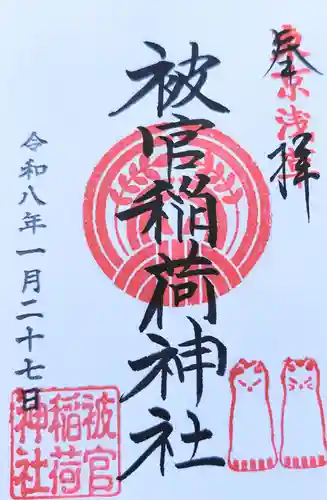 奉拝
東京浅草
被官稲荷神社
令和八年一月二十七日
被官
稲荷
神社